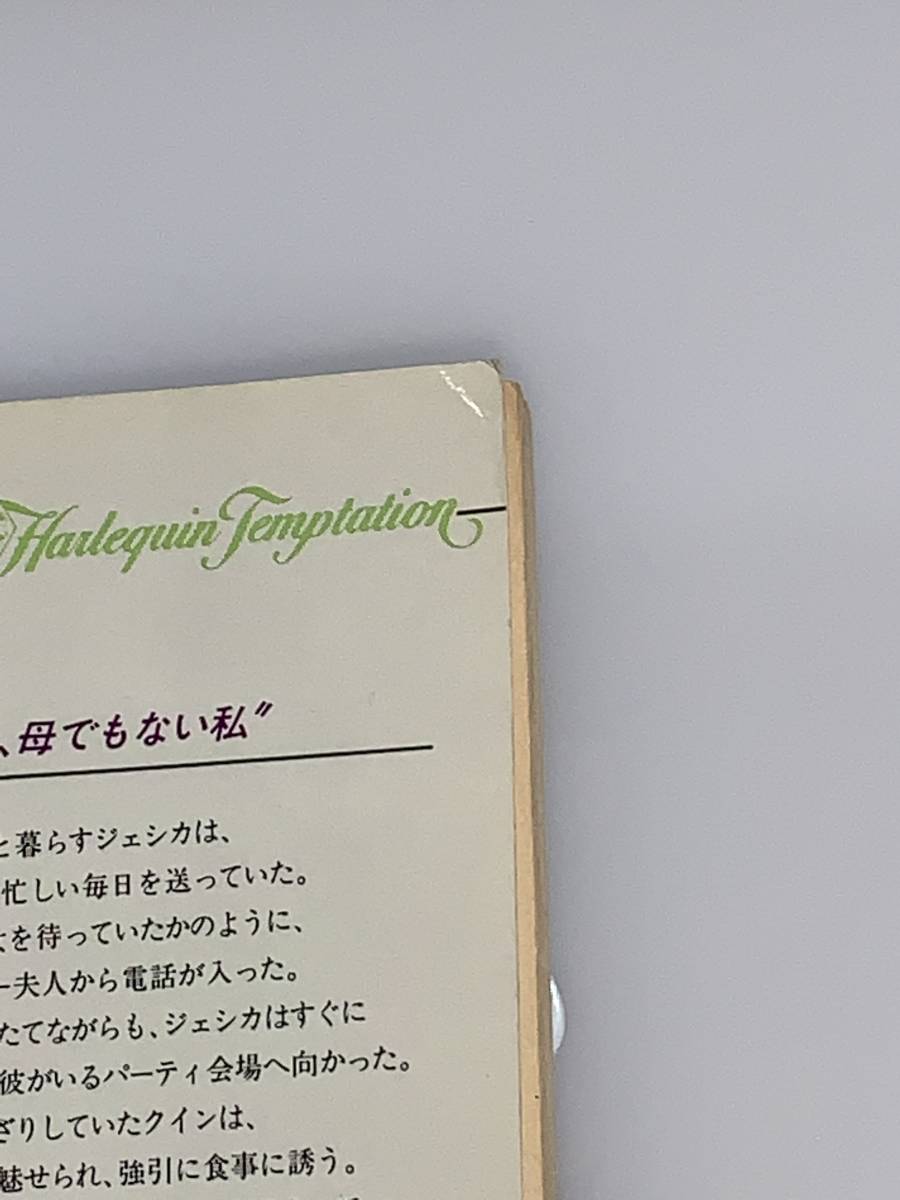 Harlequin Temptation
、母でもない私〟
と暮らすジェシカは、
忙しい毎日を送っていた。
を待っていたかのように、
ー夫人から電話が入った。
たてながらも、ジェシカはすぐに
彼がいるパーティ会場へ向かった。
ざりしていたクインは、
魅せられ、強引に食事に誘う。